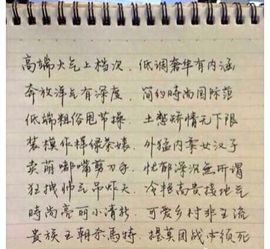 高端大气上档次，低调奢华有内涵
奔放洋气有深度，简约時尚国际范
低端粗俗甩节操，土憋矫情无下限
装模作样绿茶婊，外猛内柔女汉子
卖萌嘟嘴剪刀手，忧郁深沉无所谓
狂拽帅气吊炸天，冷艳高贵接地气
時尚亮丽小清新，可爱乡村非主流
贵族王朝杀馬特，提莫团战必须死